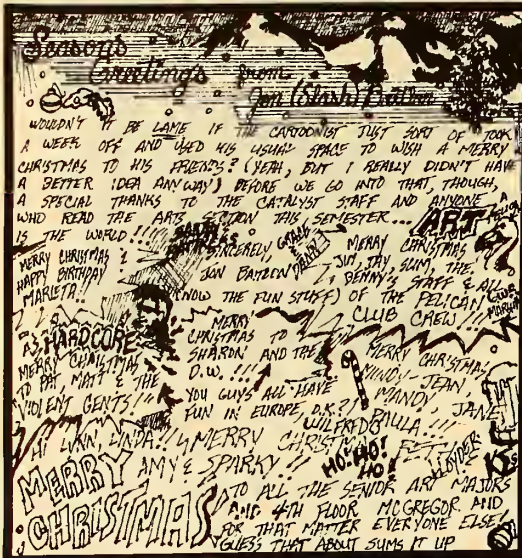 Season's
Greetings from
Jon (Slash)
WOULDN'T IT BE LAME IF THE CARTOONIST JUST SORT OF TOOK
A WEEK OFF AND USED HIS USUAL SPACE TO WISH A MERRY
CHRISTMAS TO HIS FRIENDS? (YEAH, BUT I REALLY DIDN'T HAVE
A BETTER IDEA ANYWAY) BEFORE WE GO INTO THAT, THOUGH,
A SPECIAL THANKS TO THE CATALYST STAFF AND ANYONE
WHO READ THE ARTS SECTION THIS SEMESTER...
ART
IS THE WORLD!!!!
SINCERELY,
JON
(NOW THE FUN STUFF)
MERRY CHRISTMAS &
HAPPY BIRTHDAY
MARLETA!!
MERRY CHRISTMAS
JIM, JAY, SLIM, THE
BENNY'S STAFF & ALL
OF THE PELICAN
CLUB CREW!!!
HARDCORE
MERRY CHRISTMAS
TO PAT MATT & THE
VIOLENT GENTS!!
MERRY
CHRISTMAS TO
SHARON AND THE
D.W. !!!!
YOU GUYS ALL HAVE
FUN IN EUROPE, O.K.?
MERRY CHRISTMAS
JEAN,
MANDY, JANE
WILFREDO PAULA!!!
HI LYNN, LINDA!! MERRY CHRISTMAS
AMY & SPARKY!!
HO! HO!
HO!
MERRY
CHRISTMAS
TO ALL THE SENIOR ART MAJORS
AND 4TH FLOOR MCGREGOR. AND
FOR THAT MATTER EVERYONE ELSE
GUESS THAT ABOUT SUMS IT UP